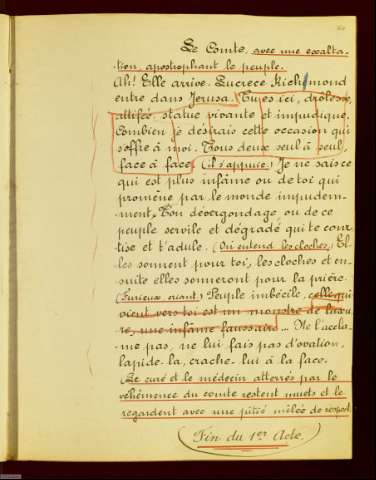 Le Comte, avec une exalta-
tion, apostrophant le peuple.
Ah! Elle arrive. Lucrece Richmond
entre dans Jerusa. Tu es ici, drôlesse,
attifée, statue vivante et impudique.
Combien je désirais cette occasion qui
s'offre à moi. Tous deux seul à seul,
face à face. (il s'appuie.) Je ne sais ce
qui est plus infâme ou de toi qui
promène par le monde impudem-
ment, Ton dévergondage, ou de ce
peuple servile et dégradé qui te cour-
tise et t'adule. (On entend les cloches.) El-
les sonnent pour toi, les cloches et en-
suite elles sonneront pour la prière.
(Furieux, criant) Peuple imbécile, celle qui
vient vers toi est un monstre de luxu-
re, une infâme faussaire... Ne l'accla-
me pas, ne lui fais pas d'ovation,
lapide-la, crache-lui à la face.
(Le curé et le médecin atterrés par la
véhémence du comte restent muets et le
regardent avec une pitié mêlée de respect.
(Fin du 1er Acte.)